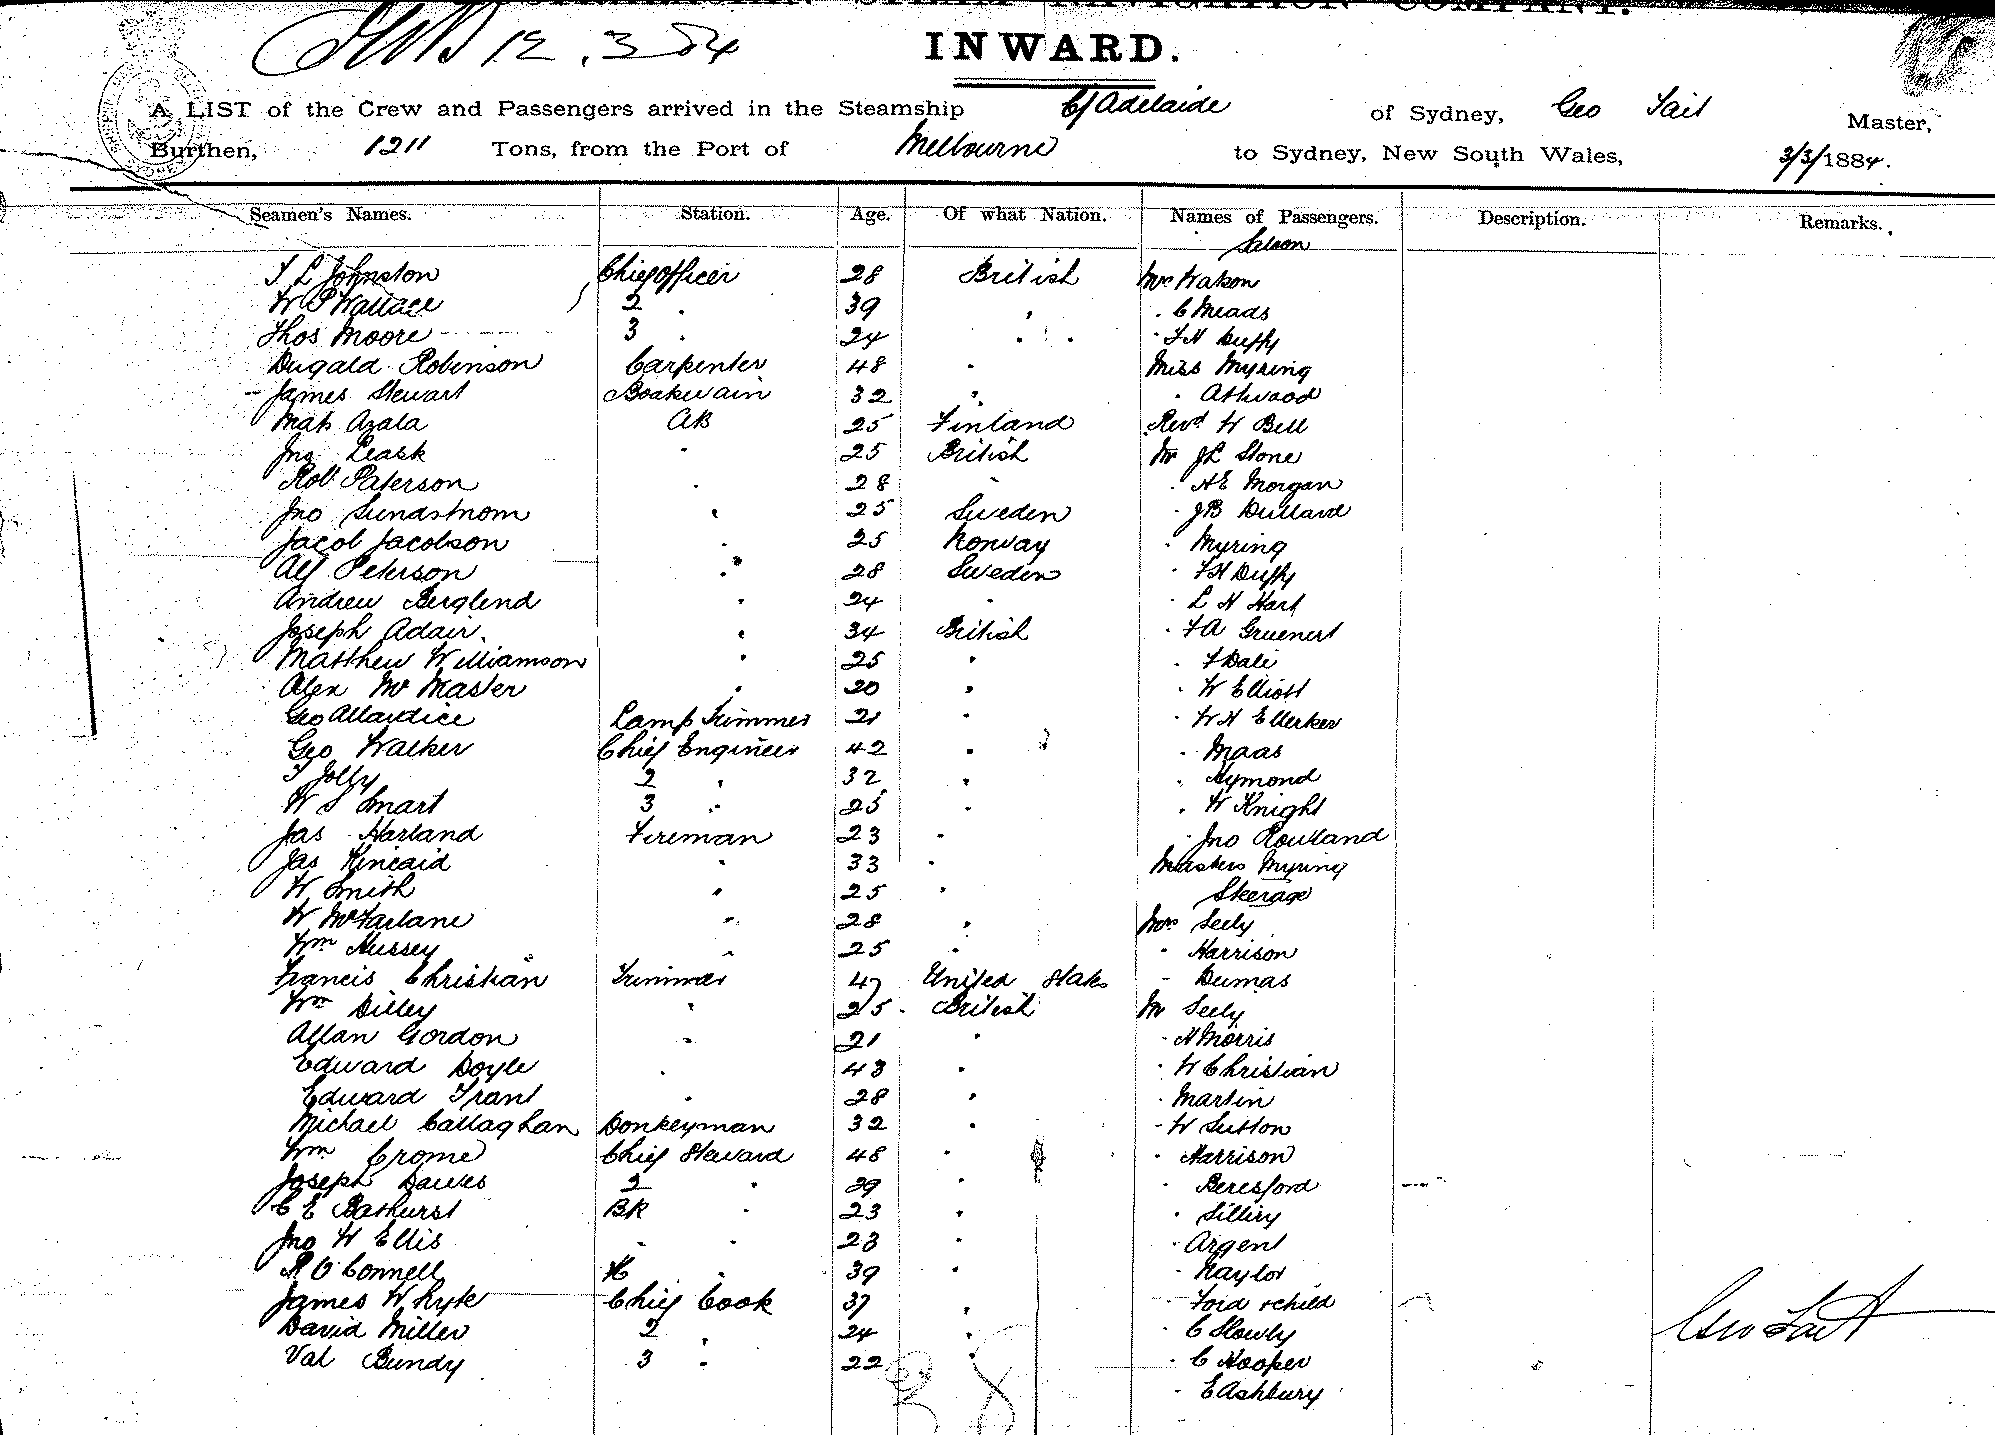 12.3.84
INWARD.
A LIST of the Crew and Passengers arrived in the Steamship C/Adelaide of Sydney, Geo Tait Master,
Burthen, 1211 Tons, from the Port of Melbourne to Sydney, New South Wales, 3/3/1884.
Seamen's Names. Station. Age. Of what Nation. Names of Passengers. Description. Remarks.
Saloon
T L Johnston Chief officer 28 British Mrs Watson
W P Wallace 2 " 39 " " C Meads
Thos Moore 3 " 24 " " F H Duffy
Dugald Robinson Carpenter 48 " Miss Myring
James Stewart Boatswain 32 " " Attwood
Mats Azala AB 25 Finland Revd W Bell
Jno Leask " 25 British Mr J L Stone
Robt Paterson " 28 " " A E Morgan
Jno Sundstrom " 25 Sweden " J B Dullard
Jacob Jacobson " 25 Norway " Myring
Alf Peterson " 28 Sweden " F H Duffy
Andrew Berglend " 24 " " L H Hart
Joseph Adair " 34 British " F A Gruenert
Matthew Williamson " 25 " " F Dale
Alex McMaster " 20 " " W Elliott
Geo Allardice Lamp Trimmer 21 " " W H Ellerker
Geo Walker Chief Engineer 42 " " Maas
T Jolly 2 " 32 " " Hymond
W S Smart 3 " 25 " " W Knight
Jas Harland Fireman 23 " " Jno Routland
Jas Kincaid " 33 " Masters Myring
W Smith " 25 " Steerage
W McFarlane " 28 " Mrs Seely
Wm Hussey " 25 " " Harrison
Francis Christian Trimmer 47 United States " Dumas
Wm Dilley " 25 British Mr Seely
Allan Gordon " 21 " " H Morris
Edward Doyle " 43 " " W Christian
Edward Trant " 28 " " Martin
Michael Callaghan Donkeyman 32 " " W Sutton
Wm Crome Chief Steward 48 " " Harrison
Joseph Dawes 2 " 39 " " Beresford
C E Bathurst BK " 23 " " Silliry
Jno W Ellis " " 23 " " Argent
P O'Connell " 39 " " Naylor
James Whyte Chief Cook 37 " " Ford & child
David Miller 2 " 24 " " C Slowly
Val Bundy 3 " 22 " " C Hooper
" E Ashbury
Geo Tait